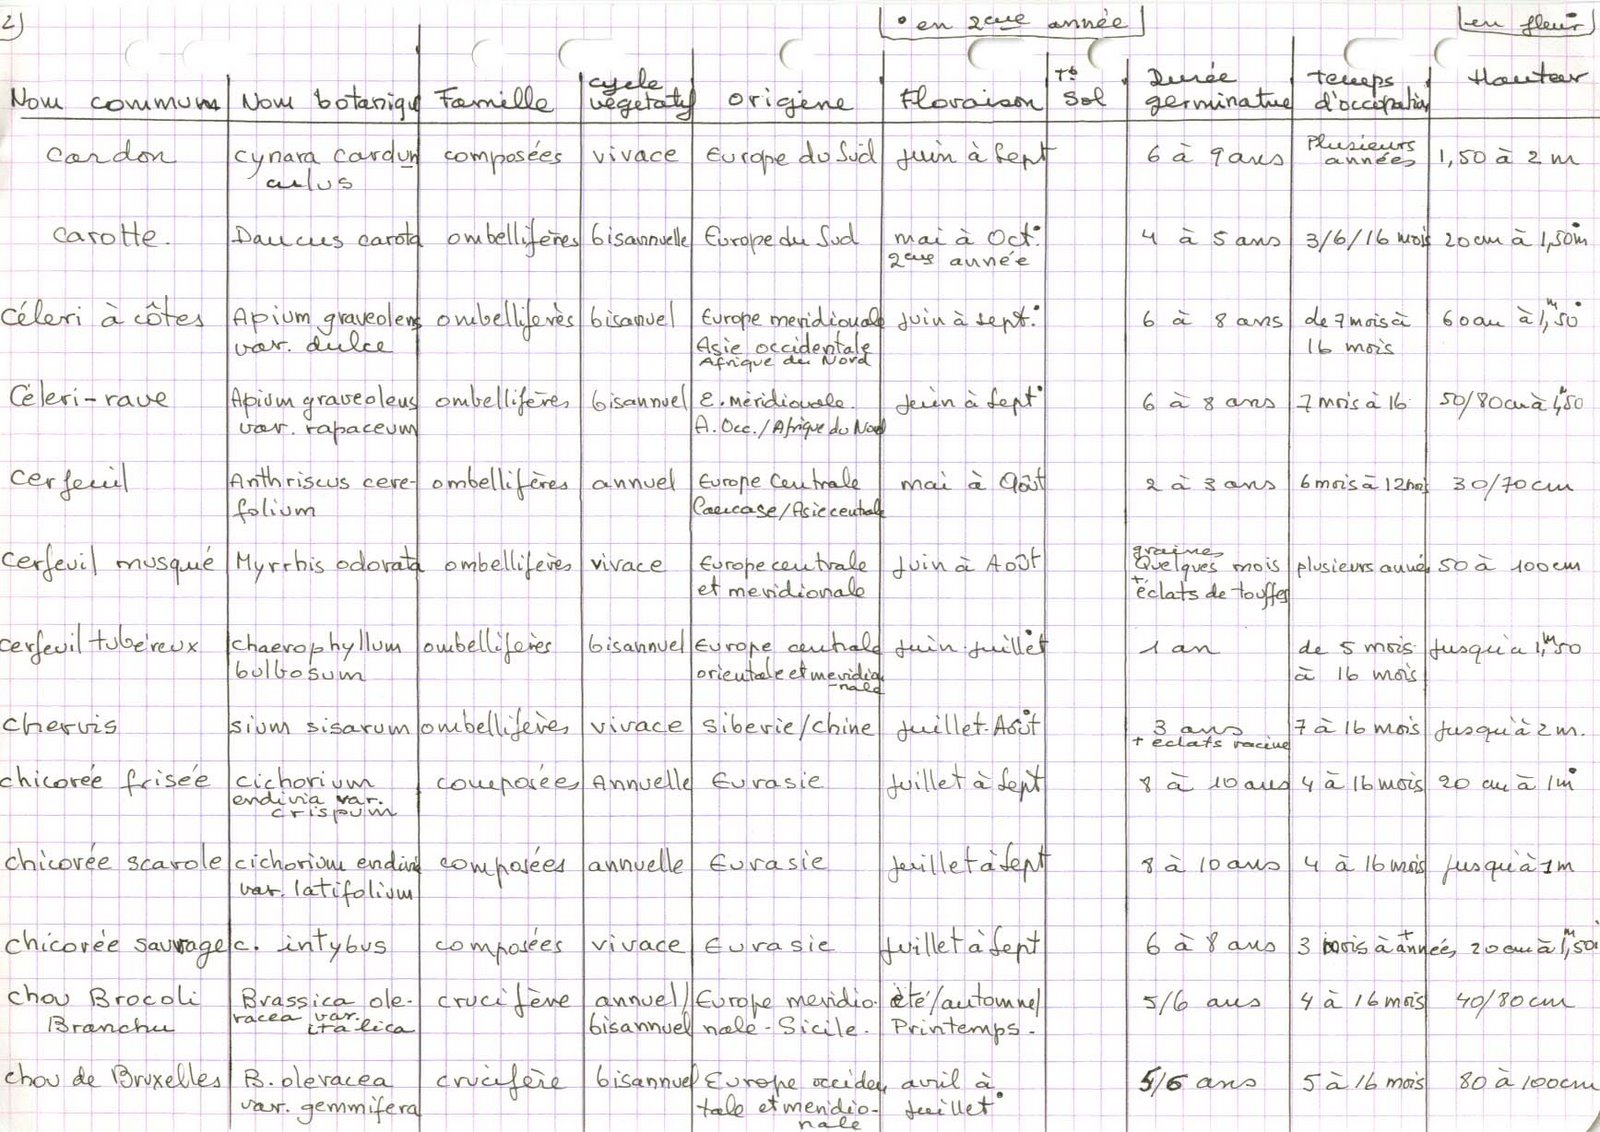 2)
• en 2ème année
en fleur
Nom commun Nom botaniqu Famille cycle végétatif origine Floraison T° Sol Durée germinative temps d'occupation Hauteur
cardon cynara cardun composées vivace Europe du Sud Juin à Sept 6 à 9 ans Plusieurs années 1,50 à 2 m
culus
carotte. Daucus carota ombellifères bisannuelle Europe du Sud mai à Oct.° 4 à 5 ans 3/6/16 mois 20 cm à 1,50m
2ème année
céleri à côtes Apium graveolens ombellifères bisanuel Europe meridionale Juin à sept.° 6 à 8 ans de 7 mois à 60 cm à 1,m50
var. dulce Asie occidentale 16 mois
Afrique du Nord
Céleri-rave Apium graveolens ombellifères bisannuel E. méridionale. Juin à Sept° 6 à 8 ans 7 mois à 16 50/80cm à 1,m50
var. rapaceum A. Occ./Afrique du Nord
cerfeuil Anthriscus cere- ombellifères annuel Europe Centrale mai à Août 2 à 3 ans 6 mois à 12 mois 30/70 cm
folium Caucase/Asie centrale
graines
cerfeuil musqué Myrrhis odorata ombellifères vivace Europe centrale Juin à Août Quelques mois plusieurs année 50 à 100 cm
et meridionale + éclats de touffes
cerfeuil tubéreux chaerophyllum ombellifères bisannuel Europe centrale Juin-Juillet 1 an de 5 mois Jusqu'à 1,m50
bulbosum orientale et meridio à 16 mois
-nale
chervis sium sisarum ombellifères vivace siberie/chine Juillet-Août 3 ans 7 à 16 mois Jusqu'à 2 m.
+ éclats racine
chicorée frisée cichorium composées Annuelle Eurasie Juillet à Sept 8 à 10 ans 4 à 16 mois 20 cm à 1m
endivia var.
crispum
chicorée scarole cichorium endivi composées annuelle Eurasie Juillet à Sept 8 à 10 ans 4 à 16 mois Jusqu'à 1m
var. latifolium
chicorée sauvage c. intybus composées vivace Eurasie Juillet à Sept 6 à 8 ans 3 mois à + année, 20 cm à 1,m50
chou Brocoli Brassica ole- crucifère annuel/ Europe meridio- été/automne/ 5/6 ans 4 à 16 mois 40/80 cm
Branchu racea var. italica bisannuel nale-Sicile. Printemps.
chou de Bruxelles B. oleracea crucifère bisannuel Europe occiden avril à 5/6 ans 5 à 16 mois 80 à 100cm
var. gemmifera tale et meridio- Juillet°
nale